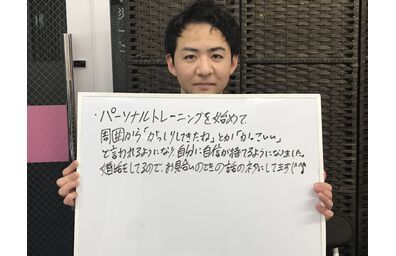 ・パーソナルトレーニングを始めて
周囲から「がっしりしてきたね」とか「かっこいい」
と言われるようになり自分に自信が持てるようになりました。
婚活をしてるので、お見合いのときの話のネタにしてます(^^)